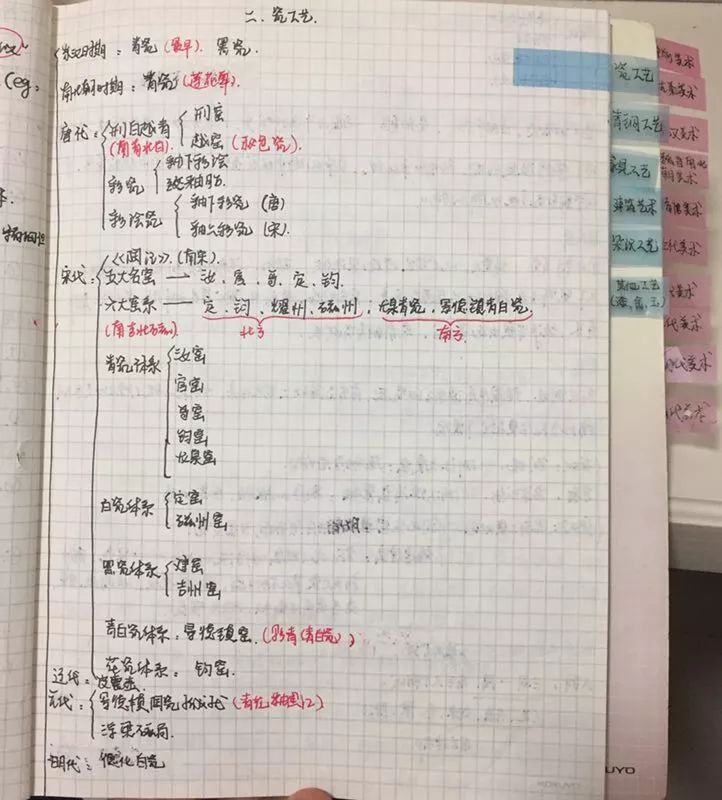 (eg,
二、瓷工艺.
东汉时期：青瓷(最早). 黑瓷.
南北朝时期：青瓷(莲花尊).
唐代：邢白越青 邢窑
(南青北白) 越窑(秘色瓷).
彩瓷 釉下彩绘
彩绘瓷 釉下彩瓷 (唐)
釉上彩瓷 (宋).
宋代：(南宋).
五大名窑 → 汝、官、哥、定、钧.
六大窑系 — 定、钧、耀州、磁州、龙泉青瓷、景德镇青白瓷.
北方 南方
青瓷体系 汝窑
官窑
哥窑
钧窑
龙泉窑
白瓷体系 定窑
磁州窑
黑瓷体系 建窑
吉州窑
青白瓷体系：景德镇窑.(影青(青白瓷))
花瓷体系：钧窑.
辽代：
元代：景德镇
浮梁磁局.
明代：德化白瓷
瓷工艺
青铜工艺
家具工艺
建筑艺术
染织工艺
其他工艺
(漆,金,玉)